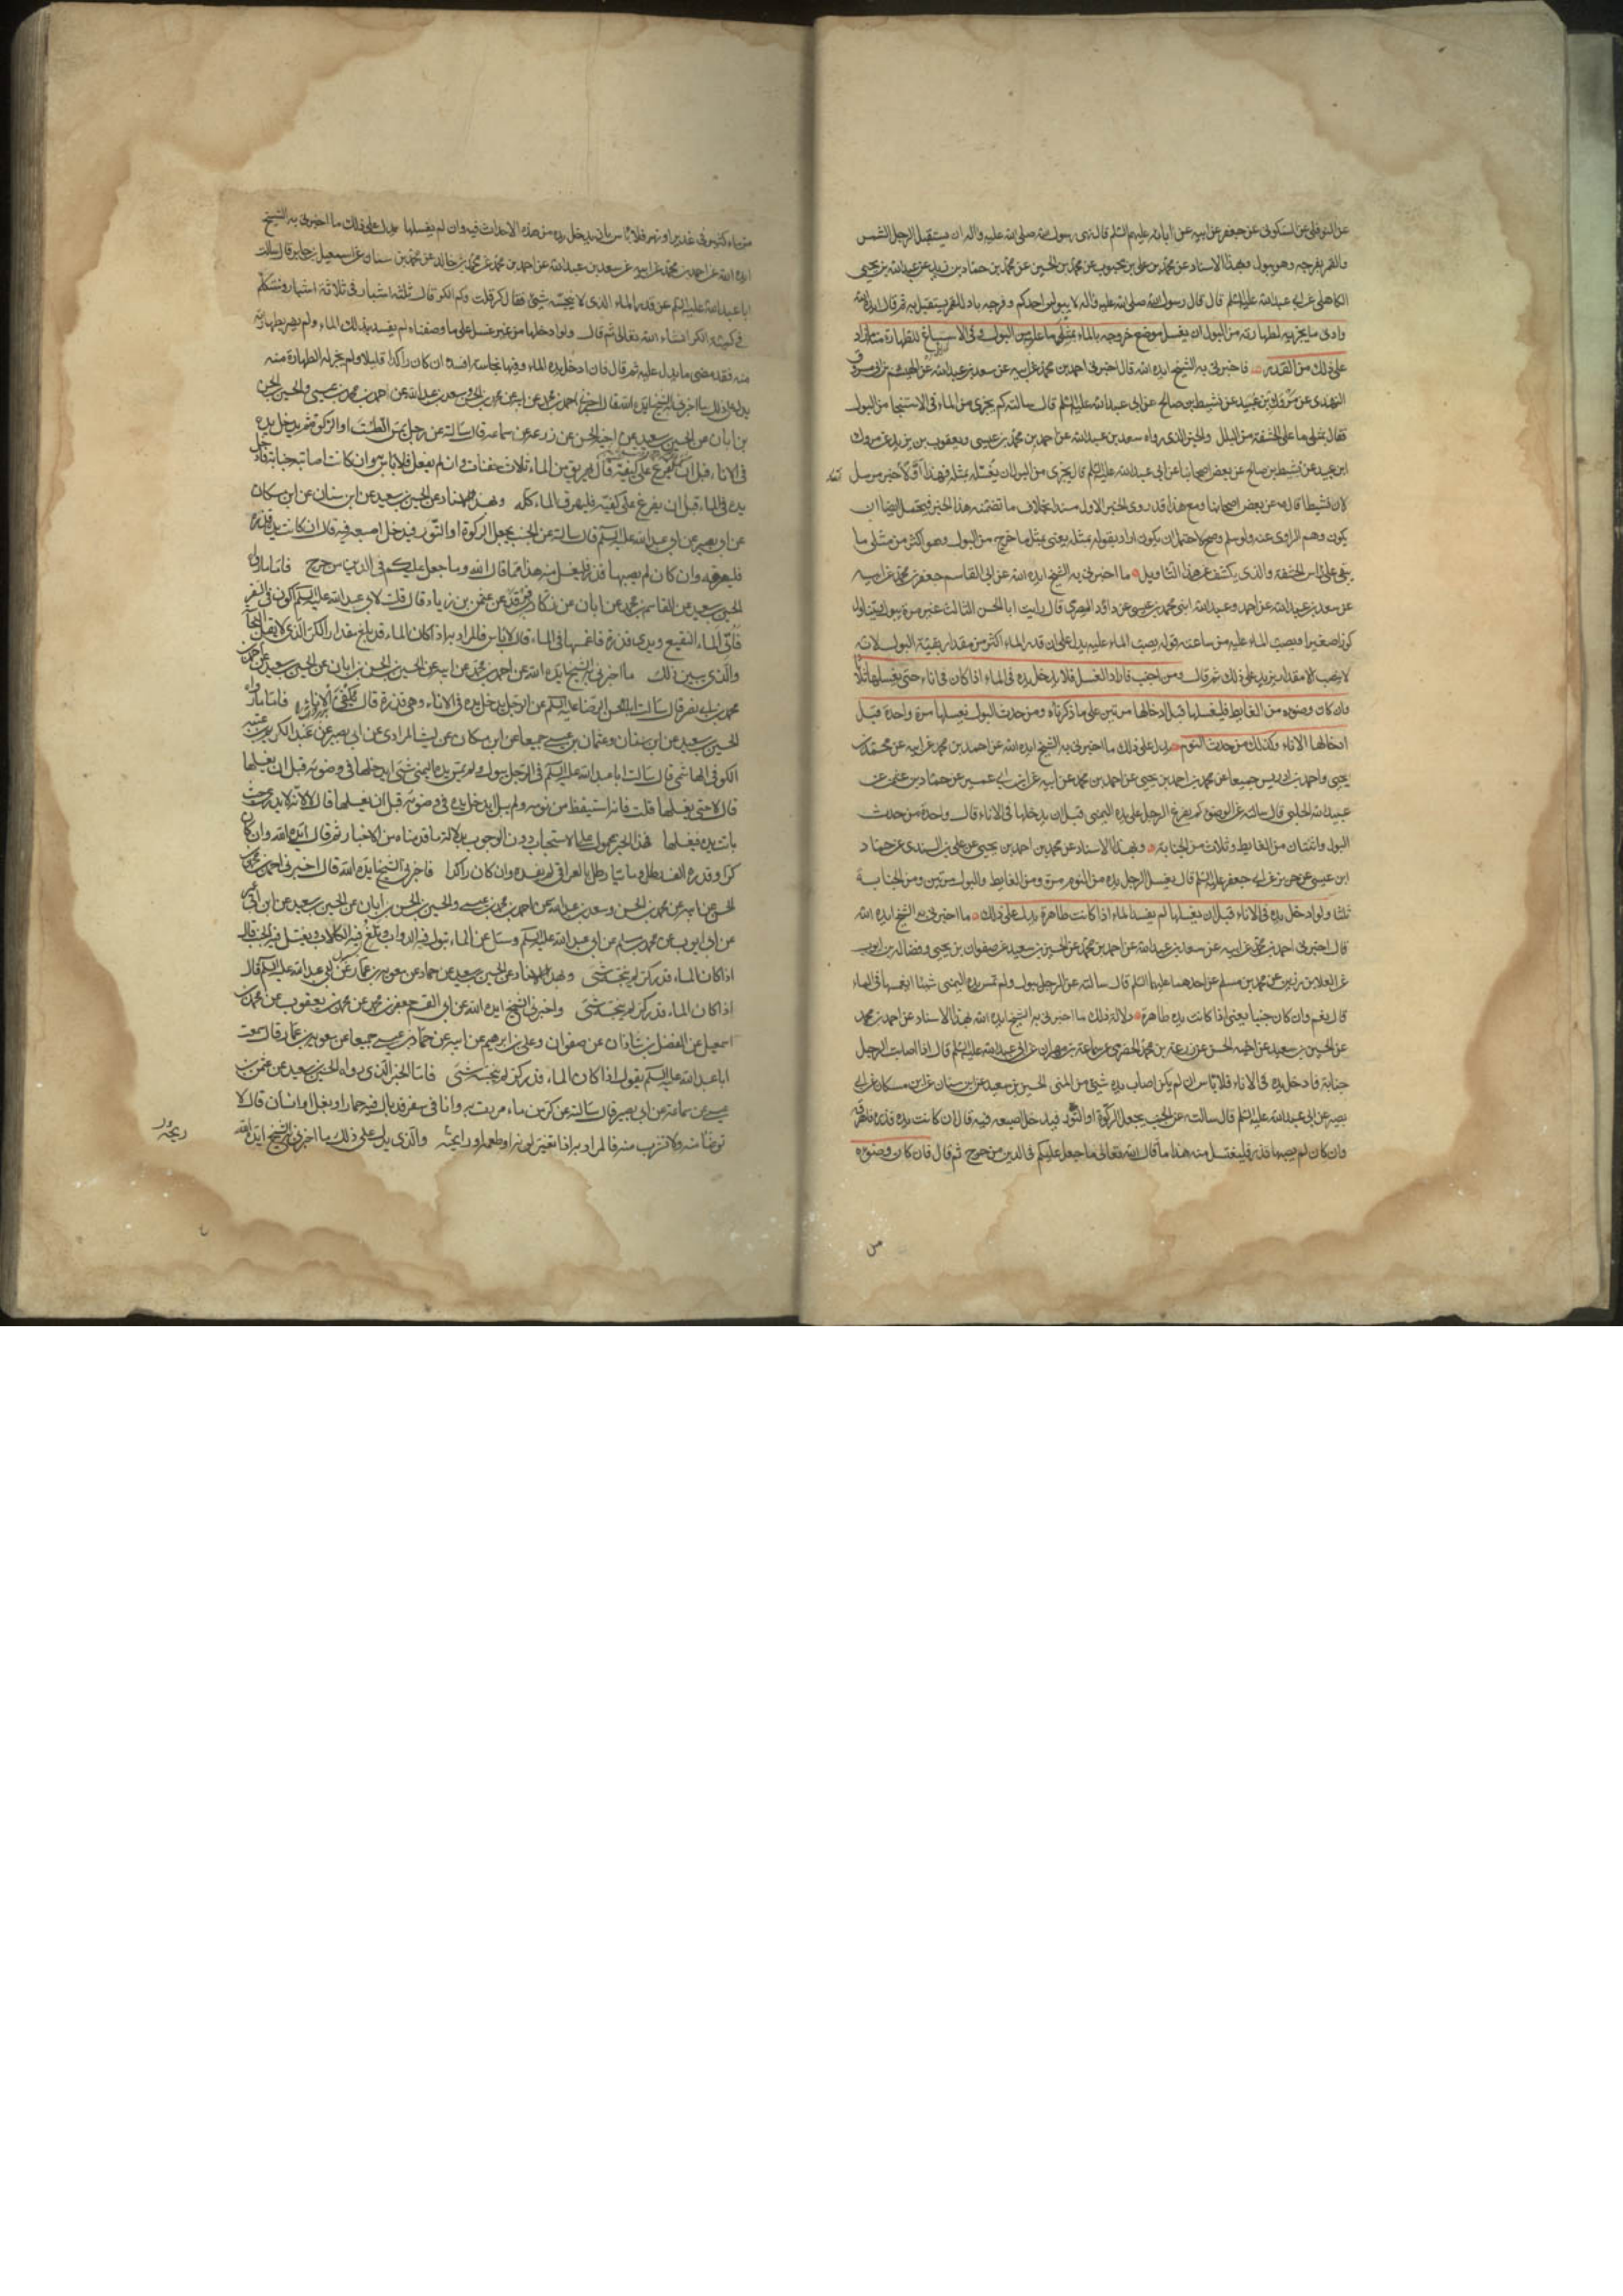 عن النوفلي عن السكوني عن جعفر عن ابيه عن ابائه عليهم السلم قال نهى رسول الله صلى الله عليه واله ان يستقبل الرجل الشمس
والقمر بفرجه وهو يبول وبهذا الاسناد عن محمد بن علي بن محبوب عن محمد بن الحسين عن محمد بن حماد بن زيد عن عبد الله بن يحيى
الكاهلي عن ابي عبد الله عليه السلم قال قال رسول الله صلى الله عليه واله لا يبولن احدكم وفرجه باد للقمر يستقبل به ثم قال ايده الله
وادنى ما يجزيه لطهارته من البول ان يغسل موضع خروجه بالماء بمثلي ما عليه من البول وفي الاسباغ للطهارة منه ما زاد
على ذلك من القدر فاخبرني به الشيخ ايده الله قال اخبرني احمد بن محمد عن ابيه عن سعد بن عبد الله عن الهيثم بن ابي مسروق
النهدي عن مروك بن عبيد عن نشيط بن صالح عن ابي عبد الله عليه السلم قال سالته كم يجزي من الماء في الاستنجا من البول
فقال بمثلي ما على الحشفة من البلل والخبر الذي رواه سعد بن عبد الله عن احمد بن محمد بن عيسى ويعقوب بن يزيد عن مروك
ابن عبيد عن نشيط بن صالح عن بعض اصحابنا عن ابي عبد الله عليه السلم قال يجزي من البول ان يغسله بمثله فهذا اولا خبر مرسل
لان نشيطا قال عن بعض اصحابنا ومع هذا قد روى الخبر الاول مسندا بخلاف ما تضمنه هذا الخبر فيحتمل ايضا ان
يكون وهم الراوي عنه ولو سلم وصح لاحتمل ان يكون اراد بقوله بمثله يعني بمثل ما خرج من البول وهو اكثر من مثلي ما
يبقى على راس الحشفة والذي يكشف عن هذا التاويل ما اخبرني به الشيخ ايده الله عن ابي القاسم جعفر بن محمد عن ابيه
عن سعد بن عبد الله عن احمد وعبد الله ابني محمد بن عيسى عن داود الصرمي قال رايت ابا الحسن الثالث عن غير مرة يبول ويتناول
كوزا صغيرا ويصب الماء عليه من ساعته قوله يصب الماء عليه يدل على ان قدر الماء اكثر من مقدار بقية البول لانه
لا يصب الا مقدار يزيد على ذلك ثم قال ومن اجنب فاراد الغسل فلا يدخل يده في الماء اذا كان في اناء حتى يغسلها ثلاثا
وان كان وضوءه من الغايط فليغسلها قبل ادخالها مرتين على ما ذكرناه ومن حدث البول يغسلها مرة واحدة قبل
ادخالها الاناء وكذلك من حدث النوم يدل على ذلك ما اخبرني به الشيخ ايده الله عن احمد بن محمد عن ابيه عن محمد بن
يحيى واحمد بن ادريس جميعا عن محمد بن احمد بن يحيى عن احمد بن محمد عن ابيه عن ابن ابي عمير عن حماد بن عثمن عن
عبيد الله الحلبي قال سالته عن الوضوء كم يفرغ الرجل على يده اليمنى قبل ان يدخلها في الاناء قال واحدة من حدث
البول واثنتان من الغايط وثلاث من الجنابة وبهذا الاسناد عن محمد بن احمد بن يحيى عن علي بن السندي عن حماد
ابن عيسى عن حريز عن ابي جعفر عليه السلم قال يغسل الرجل يده من النوم مرة ومن الغايط والبول مرتين ومن الجنابة
ثلثا ولو ادخل يده في الاناء قبل ان يغسلها لم يفسد الماء اذا كانت طاهرة يدل على ذلك ما اخبرني به الشيخ ايده الله
قال اخبرني احمد بن محمد عن ابيه عن سعد بن عبد الله عن احمد بن محمد عن الحسين بن سعيد عن صفوان بن يحيى وفضالة بن ايوب
عن العلا بن رزين عن محمد بن مسلم عن احدهما عليهما السلم قال سالته عن الرجل يبول ولم تمس يده اليمنى شيئا ايغمسها في الماء
قال نعم وان كان جنبا يعني اذا كانت يده طاهرة دلالة ذلك ما اخبرني به الشيخ ايده الله بهذا الاسناد عن احمد بن محمد
عن الحسين بن سعيد عن اخيه الحسن عن زرعة بن محمد الحضرمي عن سماعة بن مهران عن ابي عبد الله عليه السلم قال اذا اصابت الرجل
جنابة فادخل يده في الاناء فلا باس ان لم يكن اصاب يده شيئ من المني الحسين بن سعيد عن ابن سنان عن ابن مسكان عن ابي
بصير عن ابي عبد الله عليه السلم قال سالته عن الجنب يجعل الركوة او التور فيدخل اصبعه فيه قال ان كانت يده قذرة فاهرقه
وان كان لم يصبها قذر فليغتسل منه هذا ما قال الله تعالى ما جعل عليكم في الدين من حرج ثم قال فان كان وضوءه
من
من ماء كثير في غدير او نهر فلا باس بان يدخل يده من هذه الاحداث فيه وان لم يغسلها يدل على ذلك ما اخبرني به الشيخ
ايده الله عن احمد بن محمد عن ابيه عن سعد بن عبد الله عن احمد بن محمد عن محمد بن خالد عن محمد بن سنان عن اسمعيل بن جابر قال سالت
ابا عبد الله عليه السلم عن قدر الماء الذي لا ينجسه شيئ فقال كر قلت وكم الكر قال ثلثة اشبار في ثلاثة اشبار وسنتكلم
في كمية الكر انشاء الله تعالى ثم قال ولو ادخلها من غير غسل على ما وصفناه لم يفسد بذلك الماء ولم يضر بطهارته
منه فقد مضى ما يدل عليه ثم قال فان ادخل يده الماء وفيها نجاسة افسده ان كان راكدا قليلا ولم يجز له الطهارة منه
يدل على ذلك ما اخبرني به الشيخ ايده الله قال اخبرني احمد بن محمد عن ابيه عن محمد بن الحسن وسعد بن عبد الله عن احمد بن محمد بن عيسى والحسين بن الحسن
بن ابان عن الحسين بن سعيد عن اخيه الحسن عن زرعة عن سماعة قال سالته عن رجل يمس الطست او الركوة ثم يدخل يده
في الاناء قبل ان يفرغ على كفيه قال يهريق من الماء ثلاث حفنات وان لم يفعل فلا باس وان كانت اصابته جنابة فادخل
يده في الماء قبل ان يفرغ على كفيه فليهرق الماء كله وبهذا الاسناد عن الحسين بن سعيد عن ابن سنان عن ابن مسكان
عن ابي بصير عن ابي عبد الله عليه السلم قال سالته عن الجنب يجعل الركوة او التور فيدخل اصبعه فيه قال ان كانت يده قذرة
فليهرقه وان كان لم يصبها قذر فليغتسل منه هذا مما قال الله وما جعل عليكم في الدين من حرج فاما ما رواه
الحسين بن سعيد عن القاسم بن محمد عن ابان عن زكار بن فرقد عن عثمن بن زياد قال قلت لابي عبد الله عليه السلم اكون في السفر
فاتي الماء النقيع ويدي قذرة فاغمسها في الماء قال لا باس فالمراد به اذا كان الماء قد بلغ مقدار الكر الذي لا يقبل النجاسة
والذي يبين ذلك ما اخبرني به الشيخ ايده الله عن احمد بن محمد عن ابيه عن الحسين بن الحسن بن ابان عن الحسين بن سعيد عن احمد بن
محمد بن ابي نصر قال سالت ابا الحسن الرضا عليه السلم عن الرجل يدخل يده في الاناء وهي قذرة قال يكفئ الاناء فاما ما رواه
الحسين بن سعيد عن ابن سنان وعثمان بن عيسى جميعا عن ابن مسكان عن ليث المرادي عن ابي بصير عن عبد الكريم بن عتبة
الكوفي الهاشمي قال سالت ابا عبد الله عليه السلم في الرجل يبول ولم يمس يده اليمنى شئ ايدخلها في وضوئه قبل ان يغسلها
قال لا حتى يغسلها قلت فانه استيقظ من نومه ولم يبل ايدخل يده في وضوئه قبل ان يغسلها قال لا لانه لا يدري حيث
باتت يده فيغسلها فهذا الخبر محمول على الاستحباب دون الوجوب بدلالة ما قدمناه من الاخبار ثم قال ايده الله وان كان
كرا وقدره الف رطل ومايتا رطل بالعراقي لم يفسده وان كان راكدا فاخبرني الشيخ ايده الله قال اخبرني احمد بن محمد بن
الحسن عن ابيه عن محمد بن الحسن وسعد بن عبد الله عن احمد بن محمد بن عيسى والحسين بن الحسن بن ابان عن الحسين بن سعيد عن ابن ابي عمير
عن ابي ايوب عن محمد بن مسلم عن ابي عبد الله عليه السلم وسئل عن الماء تبول فيه الدواب وتلغ فيه الكلاب ويغتسل فيه الجنب قال
اذا كان الماء قدر كر لم ينجسه شئ وبهذا الاسناد عن الحسين بن سعيد عن حماد عن معوية بن عمار عن ابي عبد الله عليه السلم قال
اذا كان الماء قدر كر لم ينجسه شئ واخبرني الشيخ ايده الله عن ابي القسم جعفر بن محمد عن محمد بن يعقوب عن محمد بن
اسمعيل عن الفضل بن شاذان عن صفوان وعلي بن ابرهيم عن ابيه عن حماد بن عيسى جميعا عن معوية بن عمار قال سمعت
ابا عبد الله عليه السلم يقول اذا كان الماء قدر كر لم ينجسه شئ فاما الخبر الذي رواه الحسين بن سعيد عن عثمن بن
عيسى عن سماعة عن ابي بصير قال سالته عن كر من ماء مررت به وانا في سفر قد بال فيه حمار او بغل او انسان قال لا
توضا منه ولا تشرب منه فالمراد به اذا تغير لونه او طعمه او رايحته والذي يدل على ذلك ما اخبرني به الشيخ ايده الله